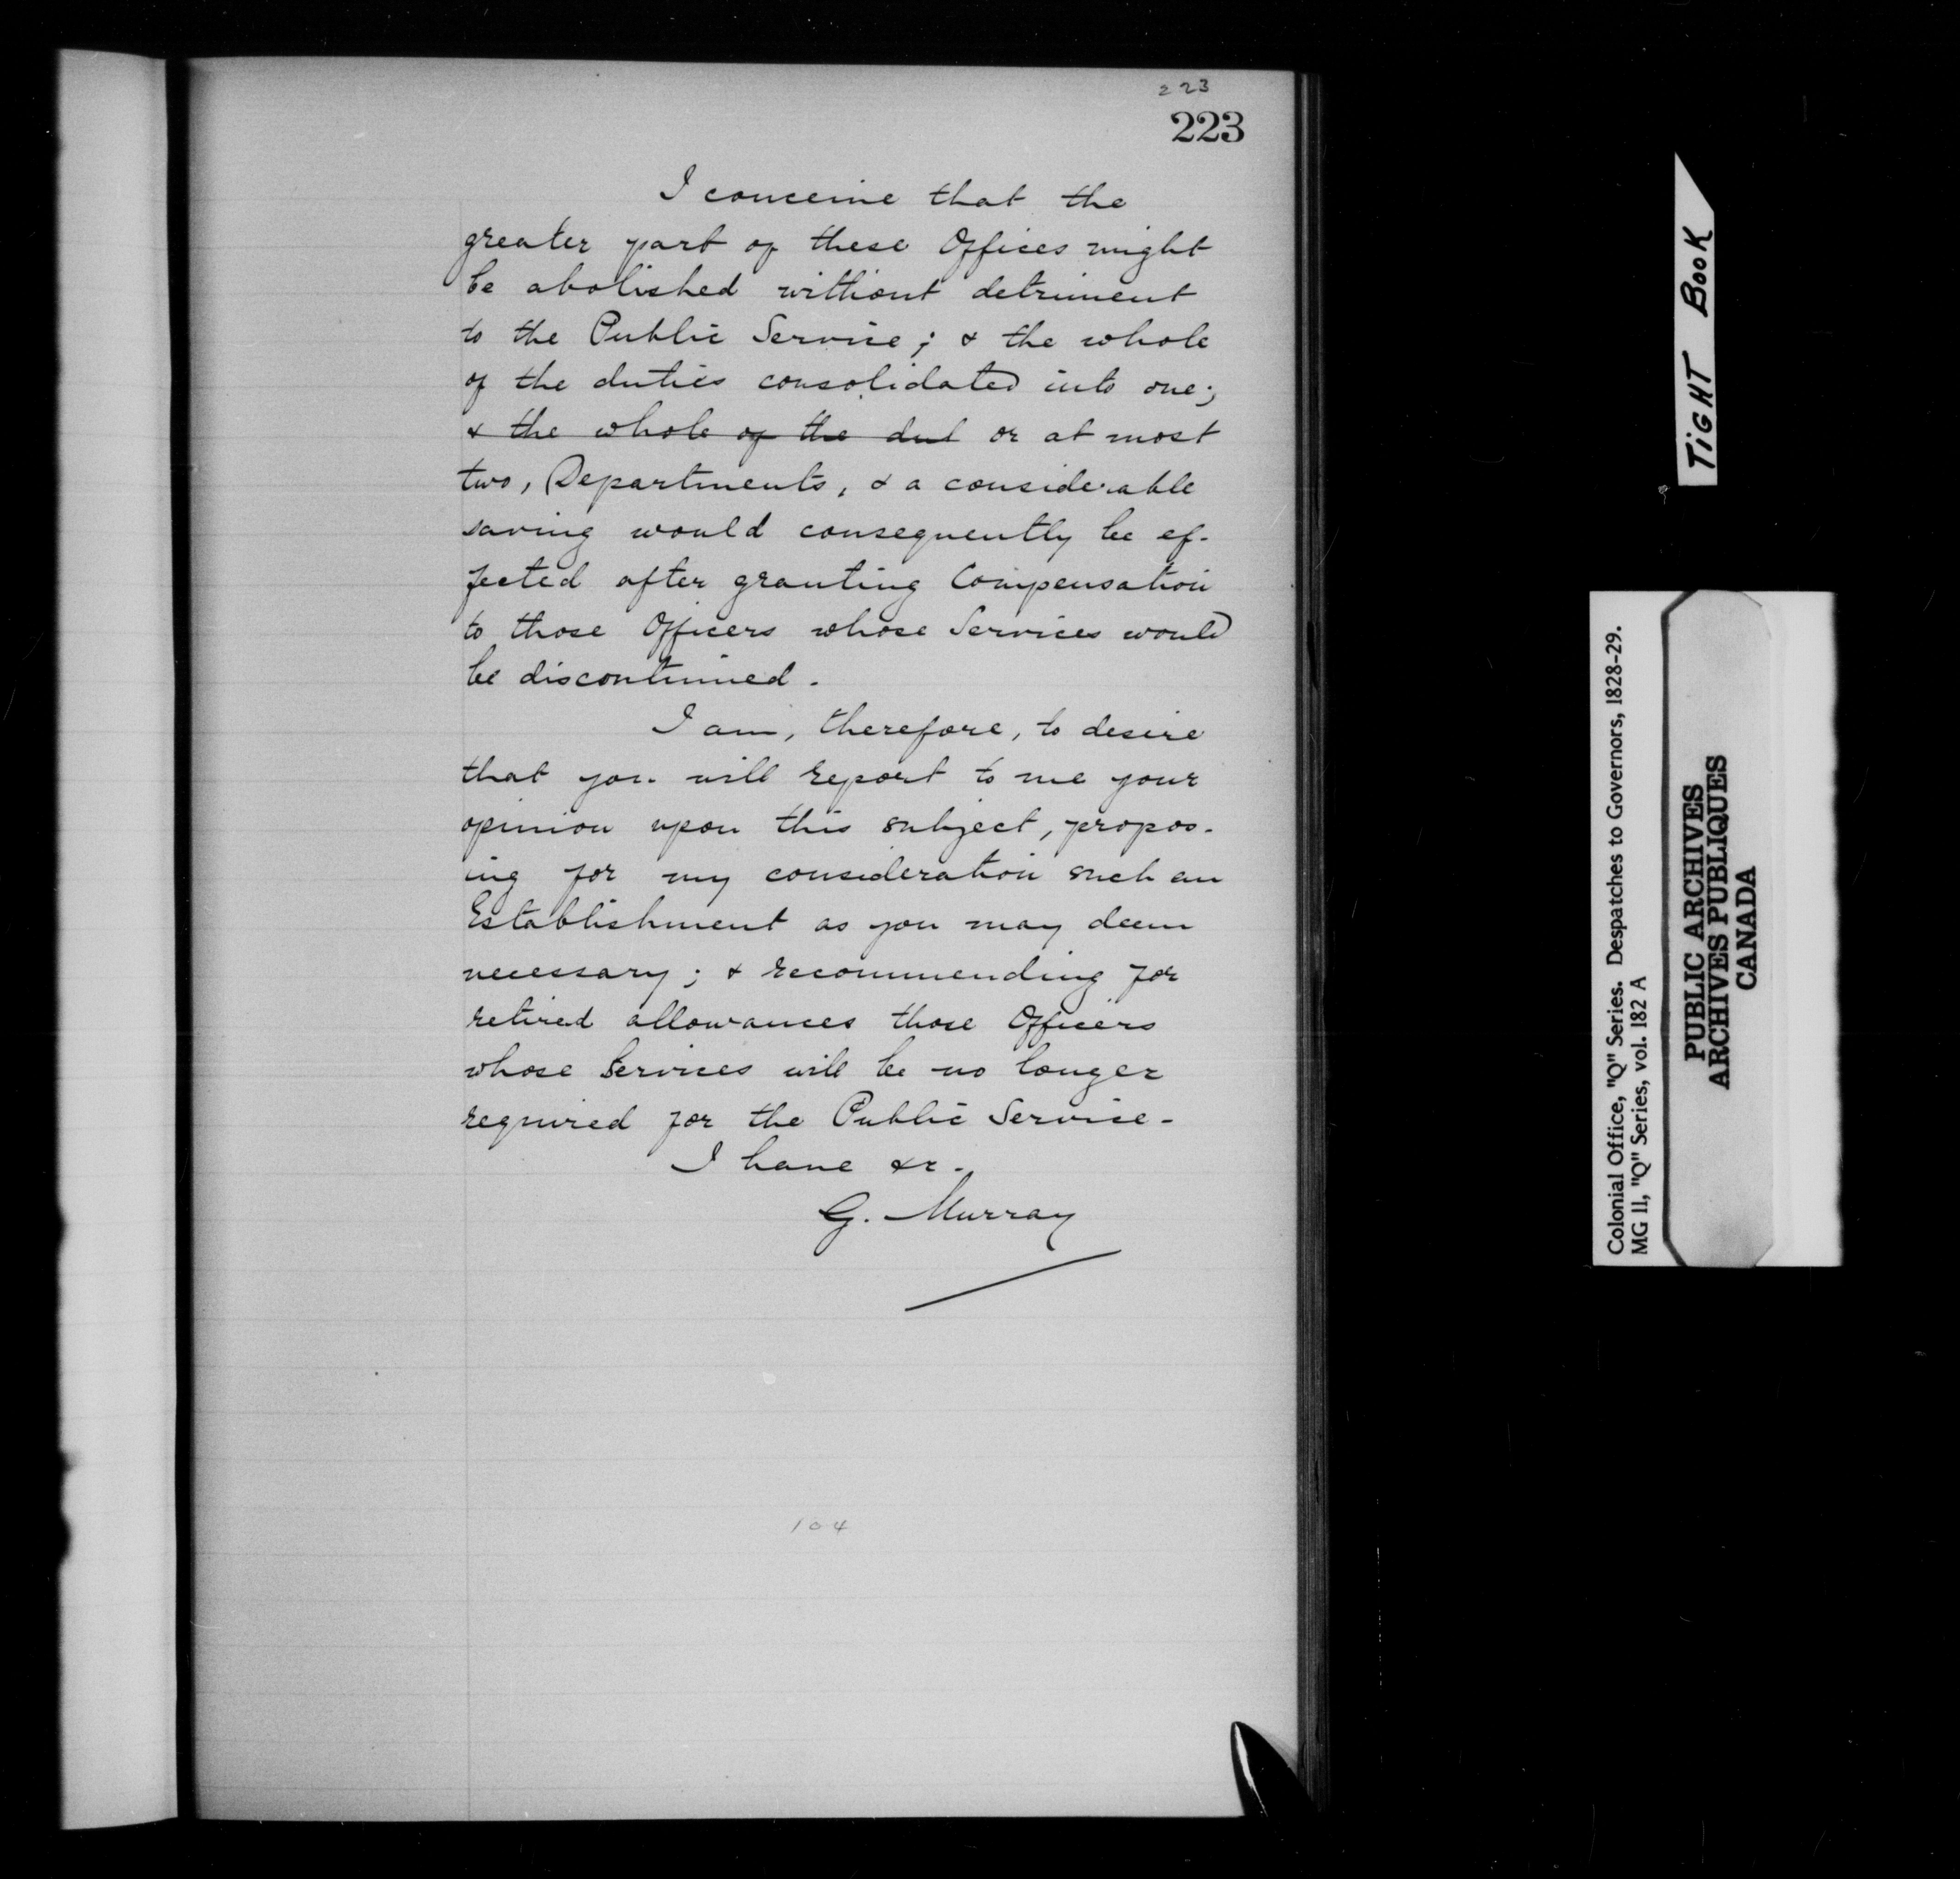 223
223
I conceive that the
greater part of these Offices might
be abolished without detriment
to the Public Service; & the whole
of the duties consolidated into one;
& the whole of the dut or at most
two, Departments, & a considerable
saving would consequently be ef-
fected after granting Compensation
to those Officers whose Services would
be discontinued.
I am, therefore, to desire
that you will report to me your
opinion upon this subject, propos-
ing for my consideration such an
Establishment as you may deem
necessary; & recommending for
retired allowances those Officers
whose Services will be no longer
required for the Public Service-
I have &c.
G. Murray
104
TIGHT BOOK
Colonial Office, "Q" Series. Despatches to Governors, 1828-29.
MG 11, "Q" Series, vol. 182 A
PUBLIC ARCHIVES
ARCHIVES PUBLIQUES
CANADA